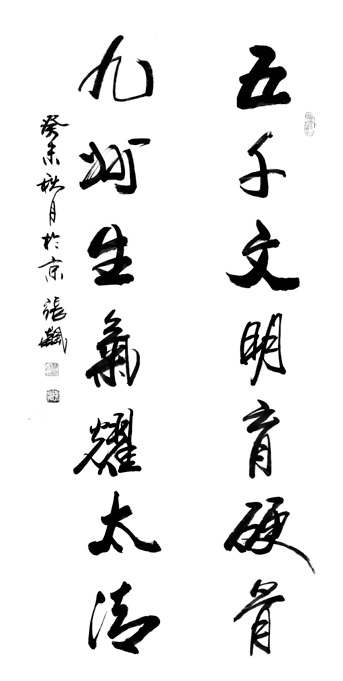 五千文明育硬骨
九州生氣耀太清
癸未秋月於京 張飈